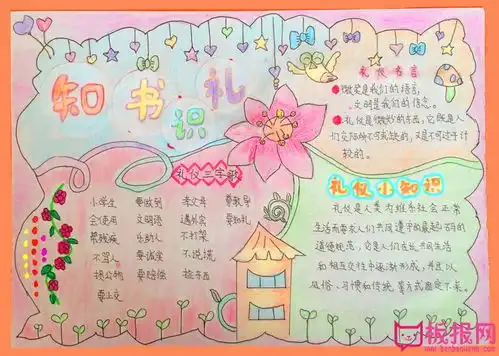 知书识礼
礼仪名言
微笑是我们的语言,
文明是我们的信念。
礼仪是微妙的东西,它既是人
们交际所不可或缺的,又是不可过于计
较的。
礼仪三字歌
小学生 要做到 孝父母 要教导
会使用 文明语 遇外宾 要有礼
帮残疾 乐助人 不打架
不骂人 要诚实 不说谎
损公物 要赔偿 拾东西
要上交
礼仪小知识
礼仪是人类为维系社会正常
生活而要求人们共同遵守的最起码的
道德规范,它是人们在长期共同生活
和相互交往中逐渐形成,并且以
风俗、习惯和传统等方式固定下来。
板报网
www.banbaowang.com